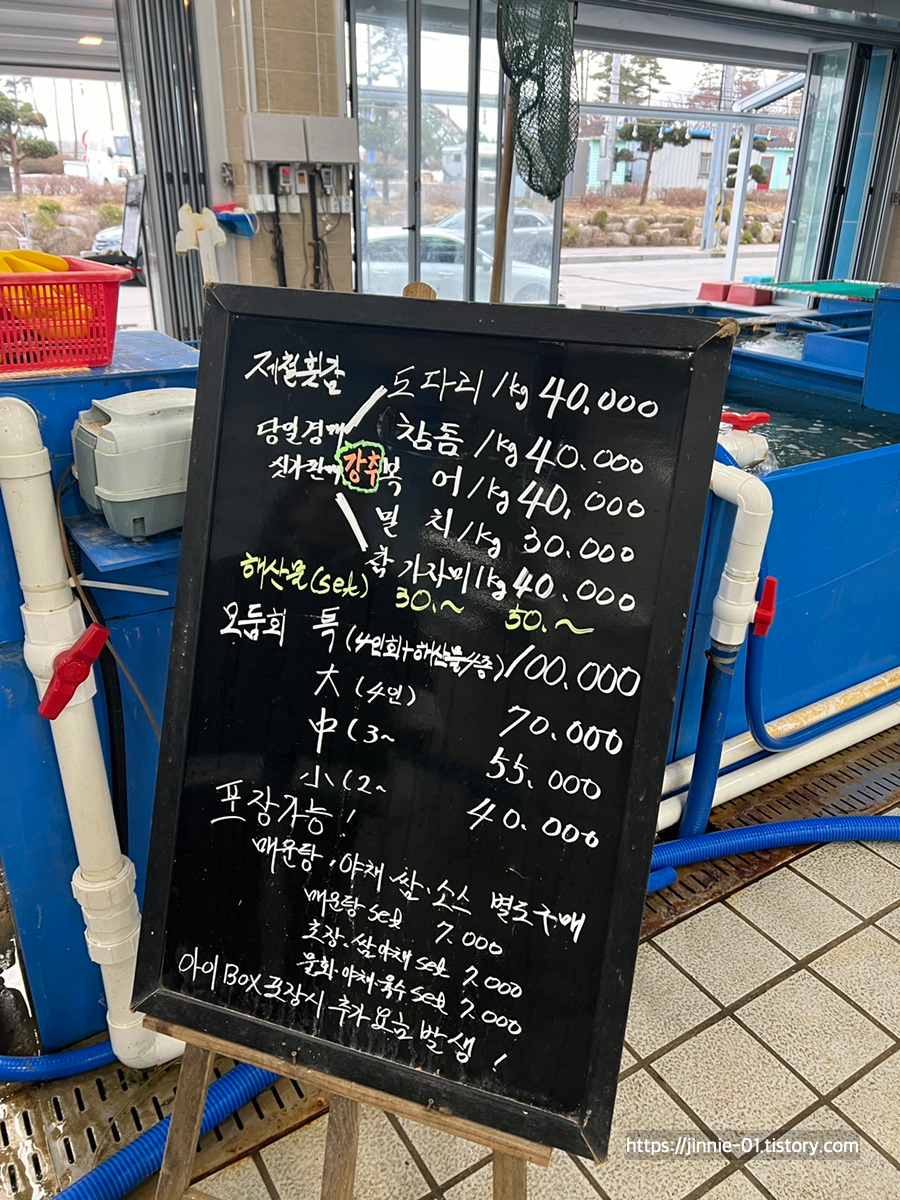 제철횟감 도다리 /kg 40.000
당일경매 참돔 /kg 40.000
싯가판매 강추 복어 /kg 40.000
밀치 /kg 30.000
참가자미 /kg 40.000
해산물(set) 30.~ 50.~
모둠회 특 (4인회+해산물4종) 100.000
大 (4인) 70.000
中 (3~ 55.000
小 (2~ 40.000
포장가능!
매운탕, 야채 쌈, 소스 별도구매
매운탕 set 7.000
초장.쌈야채 set 7.000
물회.야채.육수 set 7.000
아이Box포장시 추가요금 발생!
https://jinnie-01.tistory.com